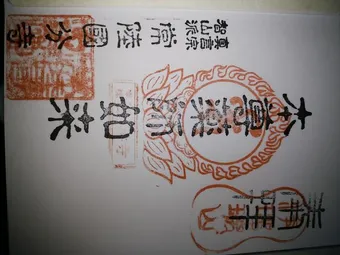 奉拜
本尊薬師如来
真言宗
智山派
常陸國分寺